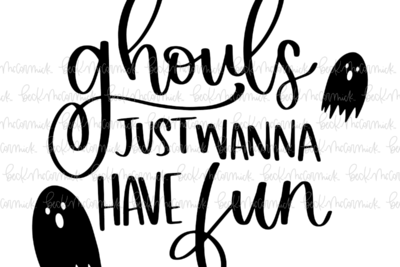 ghouls
JUST WANNA
HAVE fun